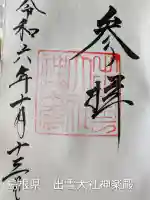 参拝
令和六年十月十三日
島根県　出雲大社神楽殿